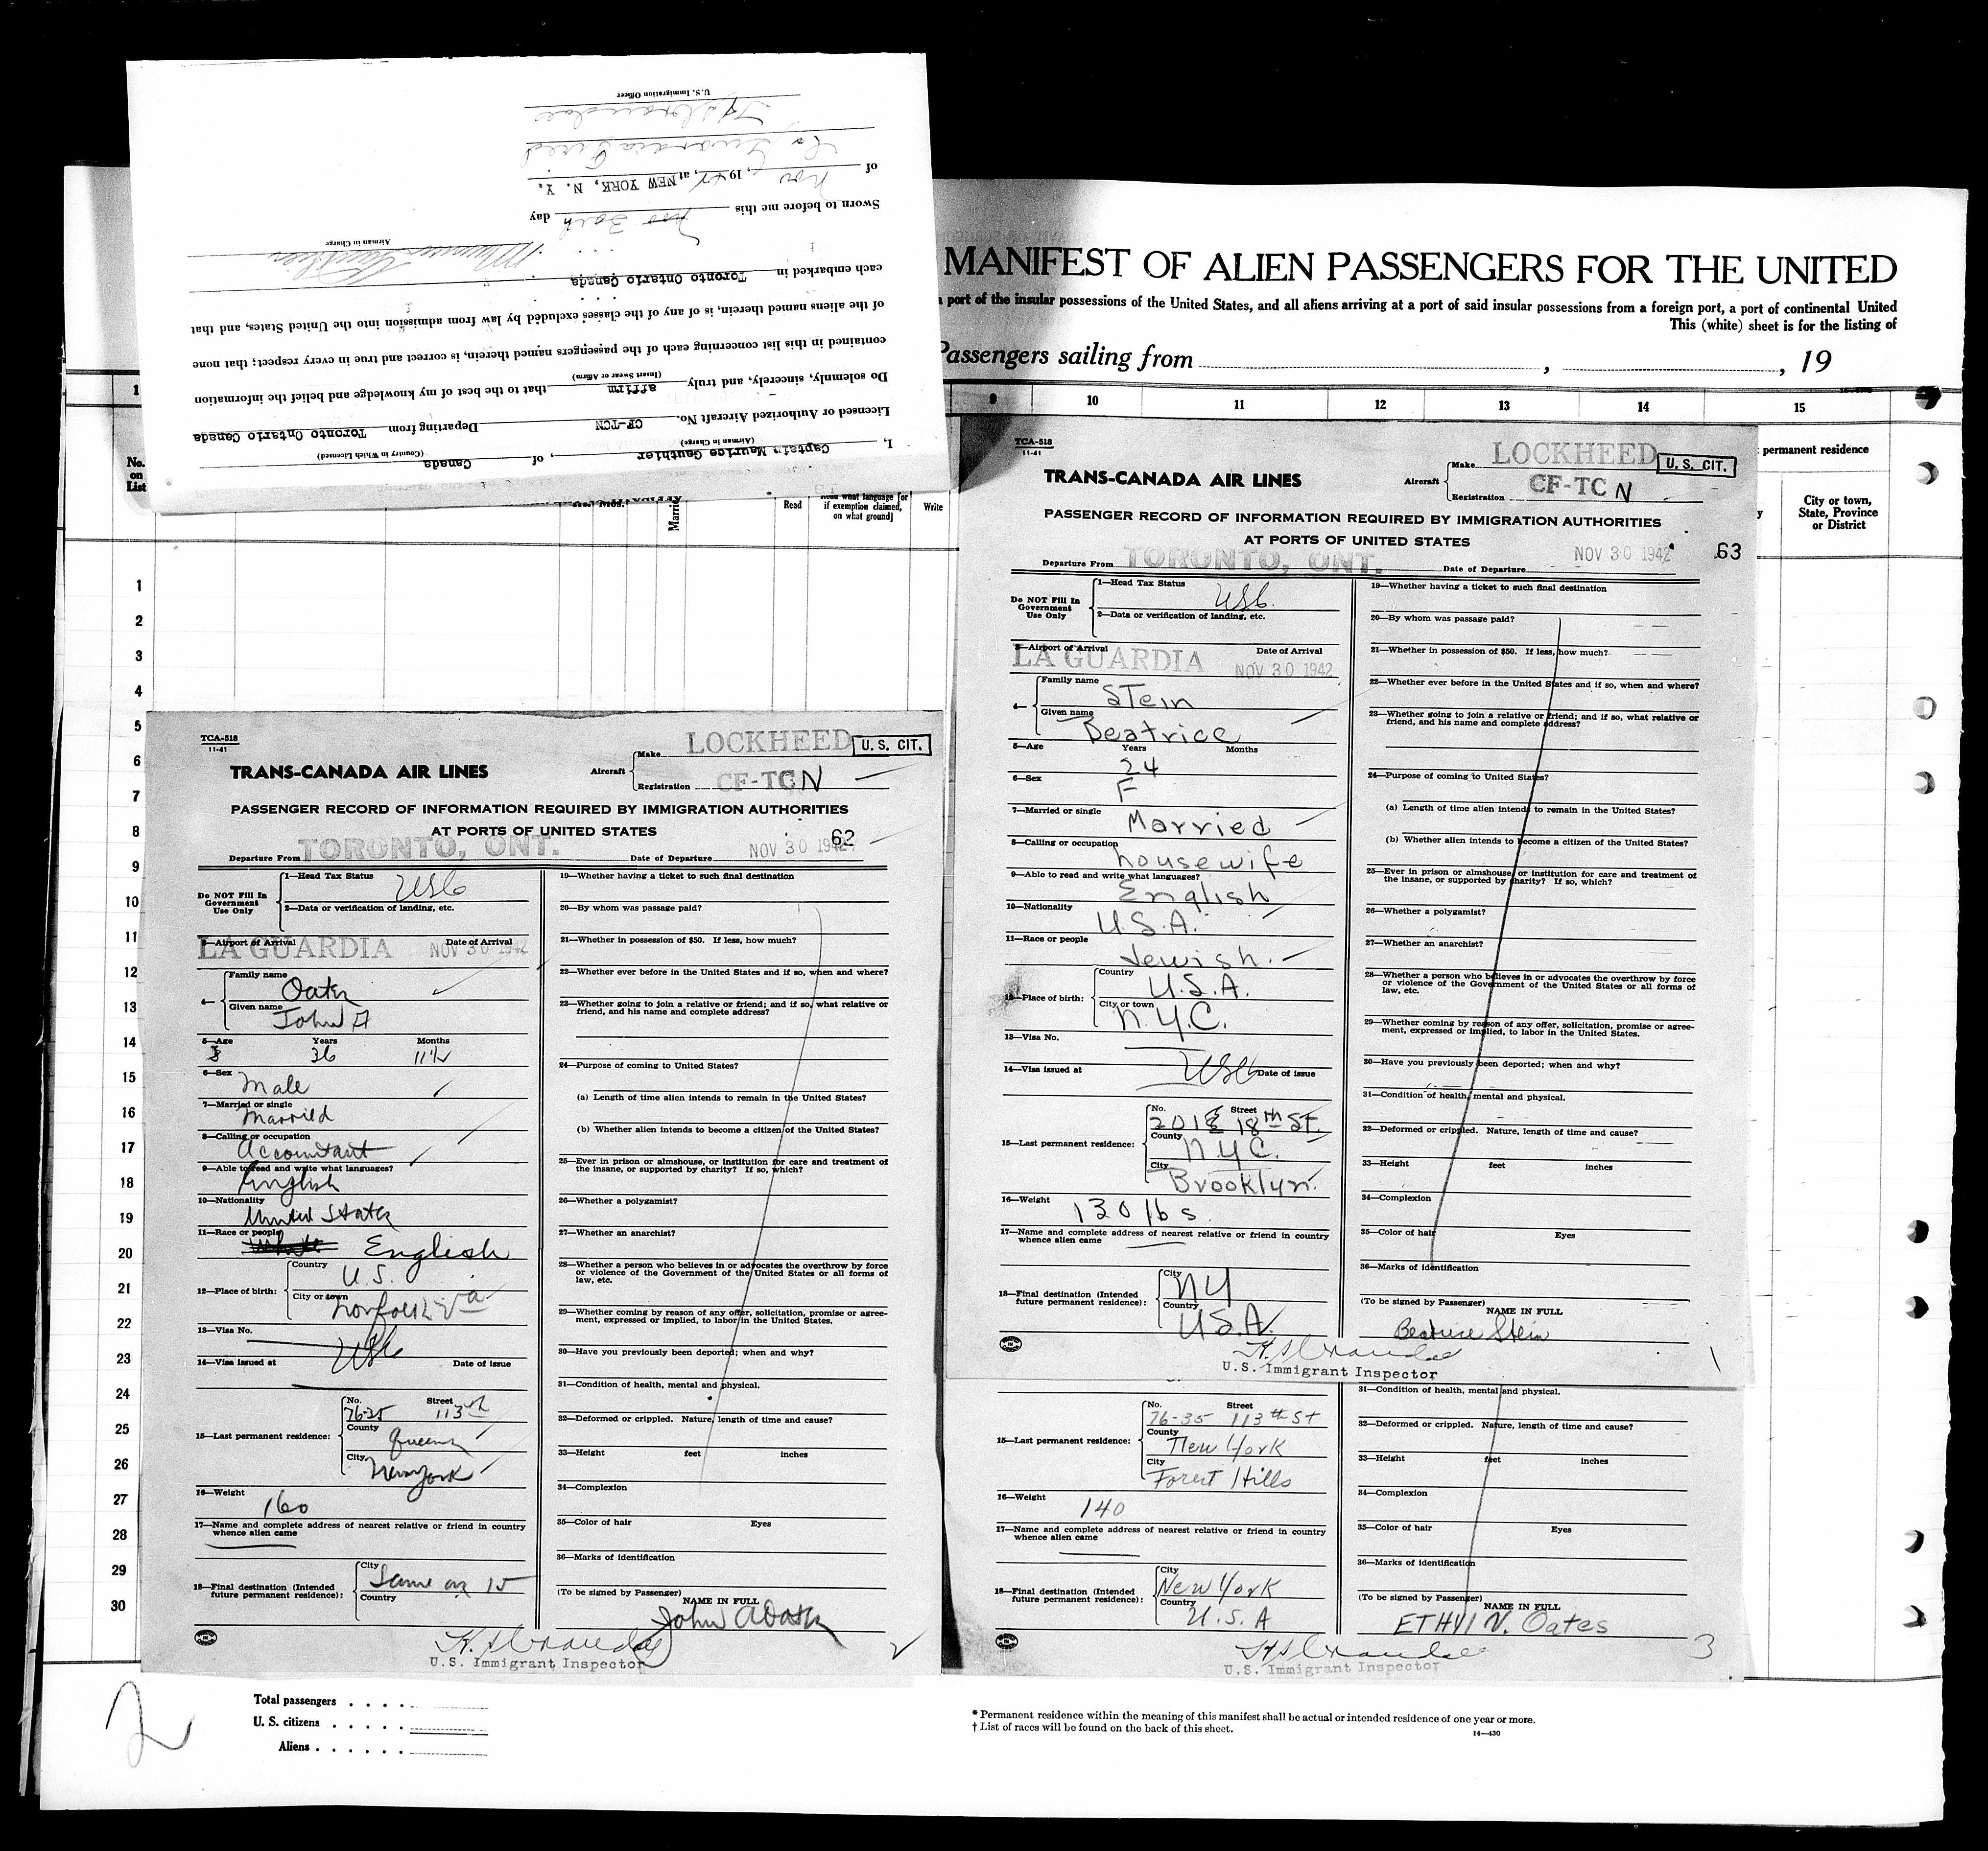 I, Captain Maurice Gauthier, of Canada
(Airman in Charge) (Country in Which Licensed)
Licensed or Authorized Aircraft No. CF-TCN Departing from Toronto Ontario Canada
Do solemnly, sincerely, and truly affirm that to the best of my knowledge and belief the information
(Insert Swear or Affirm)
contained in this list concerning each of the passengers named therein, is correct and true in every respect; that none
of the aliens named therein, is of any of the classes excluded by law from admission into the United States, and that
each embarked in Toronto Ontario Canada
Airman in Charge
Sworn to before me this 30th day
of Nov, 19 , at NEW YORK, N. Y.
La Guardia Field
U. S. Immigration Officer
MANIFEST OF ALIEN PASSENGERS FOR THE UNITED
a port of the insular possessions of the United States, and all aliens arriving at a port of said insular possessions from a foreign port, a port of continental United
This (white) sheet is for the listing of
Passengers sailing from , , 19
1 9 10 11 12 13 14 15
No. on List
Married
Read
Read what language [or if exemption claimed, on what ground]
Write
permanent residence
City or town, State, Province or District
1
2
3
4
5
6
7
8
9
10
11
12
13
14
15
16
17
18
19
20
21
22
23
24
25
26
27
28
29
30
TCA-518
11-41
TRANS-CANADA AIR LINES
Aircraft
Make LOCKHEED
U. S. CIT.
Registration CF-TCN
PASSENGER RECORD OF INFORMATION REQUIRED BY IMMIGRATION AUTHORITIES
AT PORTS OF UNITED STATES
62
Departure From TORONTO, ONT. Date of Departure NOV 30 1942
Do NOT Fill In Government Use Only
1—Head Tax Status USC
2—Data or verification of landing, etc.
3—Airport of Arrival LA GUARDIA Date of Arrival NOV 30 1942
4— Family name Oates
Given name John A
5—Age Years 36 Months 11½
6—Sex Male
7—Married or single Married
8—Calling or occupation Accountant
9—Able to read and write what languages? English
10—Nationality United States
11—Race or people White English
12—Place of birth: Country U.S.
City or town Norfolk Va
13—Visa No. USC
14—Visa issued at Date of issue
15—Last permanent residence: No. 76-35 Street 113th
County Queens
City New York
16—Weight 160
17—Name and complete address of nearest relative or friend in country whence alien came
18—Final destination (Intended future permanent residence): City Same as 15
Country
19—Whether having a ticket to such final destination
20—By whom was passage paid?
21—Whether in possession of $50. If less, how much?
22—Whether ever before in the United States and if so, when and where?
23—Whether going to join a relative or friend; and if so, what relative or friend, and his name and complete address?
24—Purpose of coming to United States?
(a) Length of time alien intends to remain in the United States?
(b) Whether alien intends to become a citizen of the United States?
25—Ever in prison or almshouse, or institution for care and treatment of the insane, or supported by charity? If so, which?
26—Whether a polygamist?
27—Whether an anarchist?
28—Whether a person who believes in or advocates the overthrow by force or violence of the Government of the United States or all forms of law, etc.
29—Whether coming by reason of any offer, solicitation, promise or agreement, expressed or implied, to labor in the United States.
30—Have you previously been deported; when and why?
31—Condition of health, mental and physical.
32—Deformed or crippled. Nature, length of time and cause?
33—Height feet inches
34—Complexion
35—Color of hair Eyes
36—Marks of identification
(To be signed by Passenger) NAME IN FULL
John A Oates
U.S. Immigrant Inspector
2
TCA-518
11-41
TRANS-CANADA AIR LINES
Aircraft
Make LOCKHEED
U. S. CIT.
Registration CF-TCN
PASSENGER RECORD OF INFORMATION REQUIRED BY IMMIGRATION AUTHORITIES
AT PORTS OF UNITED STATES
63
Departure From TORONTO, ONT. Date of Departure NOV 30 1942
Do NOT Fill In Government Use Only
1—Head Tax Status USC
2—Data or verification of landing, etc.
3—Airport of Arrival LA GUARDIA Date of Arrival NOV 30 1942
4— Family name Stein
Given name Beatrice
5—Age Years 24 Months
6—Sex F
7—Married or single Married
8—Calling or occupation housewife
9—Able to read and write what languages? English
10—Nationality U.S.A.
11—Race or people Jewish.
12—Place of birth: Country U.S.A.
City or town N.Y.C.
13—Visa No.
14—Visa issued at USC Date of issue
15—Last permanent residence: No. 201 E Street 18th St.
County N.Y.C.
City Brooklyn.
16—Weight 130 lbs.
17—Name and complete address of nearest relative or friend in country whence alien came
18—Final destination (Intended future permanent residence): City NY
Country U.S.A.
19—Whether having a ticket to such final destination
20—By whom was passage paid?
21—Whether in possession of $50. If less, how much?
22—Whether ever before in the United States and if so, when and where?
23—Whether going to join a relative or friend; and if so, what relative or friend, and his name and complete address?
24—Purpose of coming to United States?
(a) Length of time alien intends to remain in the United States?
(b) Whether alien intends to become a citizen of the United States?
25—Ever in prison or almshouse, or institution for care and treatment of the insane, or supported by charity? If so, which?
26—Whether a polygamist?
27—Whether an anarchist?
28—Whether a person who believes in or advocates the overthrow by force or violence of the Government of the United States or all forms of law, etc.
29—Whether coming by reason of any offer, solicitation, promise or agreement, expressed or implied, to labor in the United States.
30—Have you previously been deported; when and why?
31—Condition of health, mental and physical.
32—Deformed or crippled. Nature, length of time and cause?
33—Height feet inches
34—Complexion
35—Color of hair Eyes
36—Marks of identification
(To be signed by Passenger) NAME IN FULL
Beatrice Stein
U.S. Immigrant Inspector
1
15—Last permanent residence: No. 76-35 Street 113th St
County New York
City Forest Hills
16—Weight 140
17—Name and complete address of nearest relative or friend in country whence alien came
18—Final destination (Intended future permanent residence): City New York
Country U.S.A
31—Condition of health, mental and physical.
32—Deformed or crippled. Nature, length of time and cause?
33—Height feet inches
34—Complexion
35—Color of hair Eyes
36—Marks of identification
(To be signed by Passenger) NAME IN FULL
Ethyl N. Oates
U.S. Immigrant Inspector
3
2
Total passengers . . . .
U. S. citizens . . . . .
Aliens . . . . . .
* Permanent residence within the meaning of this manifest shall be actual or intended residence of one year or more.
† List of races will be found on the back of this sheet.
14—430